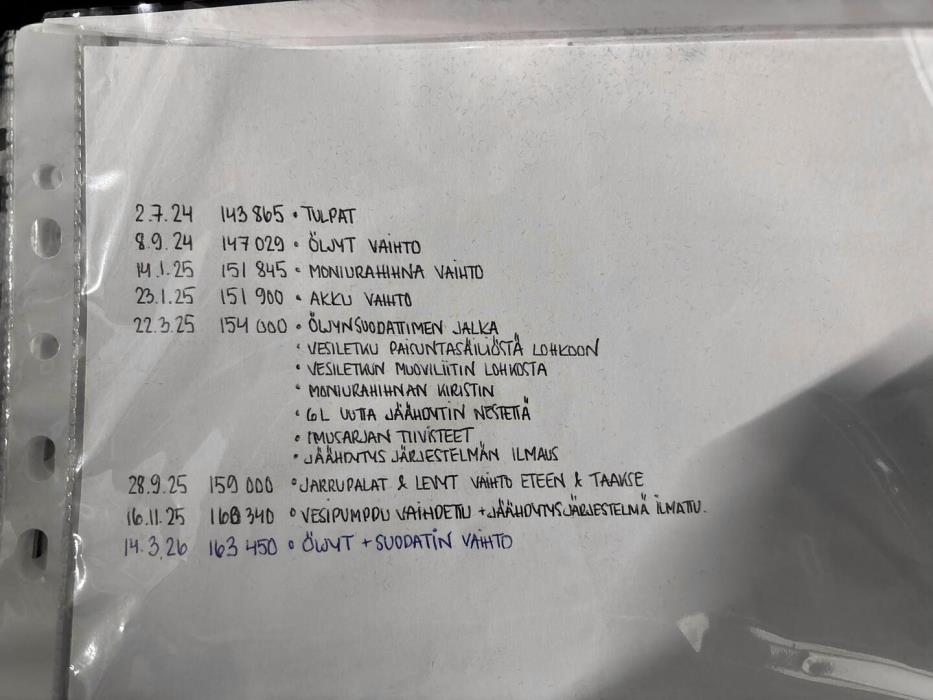 2.7.24 143 865 • TULPAT
8.9.24 147 029 • ÖLJYT VAIHTO
14.1.25 151 845 • MONIURAHIHNA VAIHTO
23.1.25 151 900 • AKKU VAIHTO
22.3.25 154 000 • ÖLJYNSUODATTIMEN JALKA
• VESILETKU PAISUNTASÄILIÖSTÄ LOHKOON
• VESILETKUN MUOVILIITIN LOHKOSTA
• MONIURAHIHNAN KIRISTIN
• 6L UUTTA JÄÄHDYTIN NESTETTÄ
• IMUSARJAN TIIVISTEET
• JÄÄHDYTYS JÄRJESTELMÄN ILMAUS
28.9.25 159 000 • JARRUPALAT & LEVYT VAIHTO ETEEN & TAAKSE
16.11.25 160 340 • VESIPUMPPU VAIHDETTU + JÄÄHDYTYSJÄRJESTELMÄ ILMATTU.
14.3.26 163 450 • ÖLJYT + SUODATIN VAIHTO